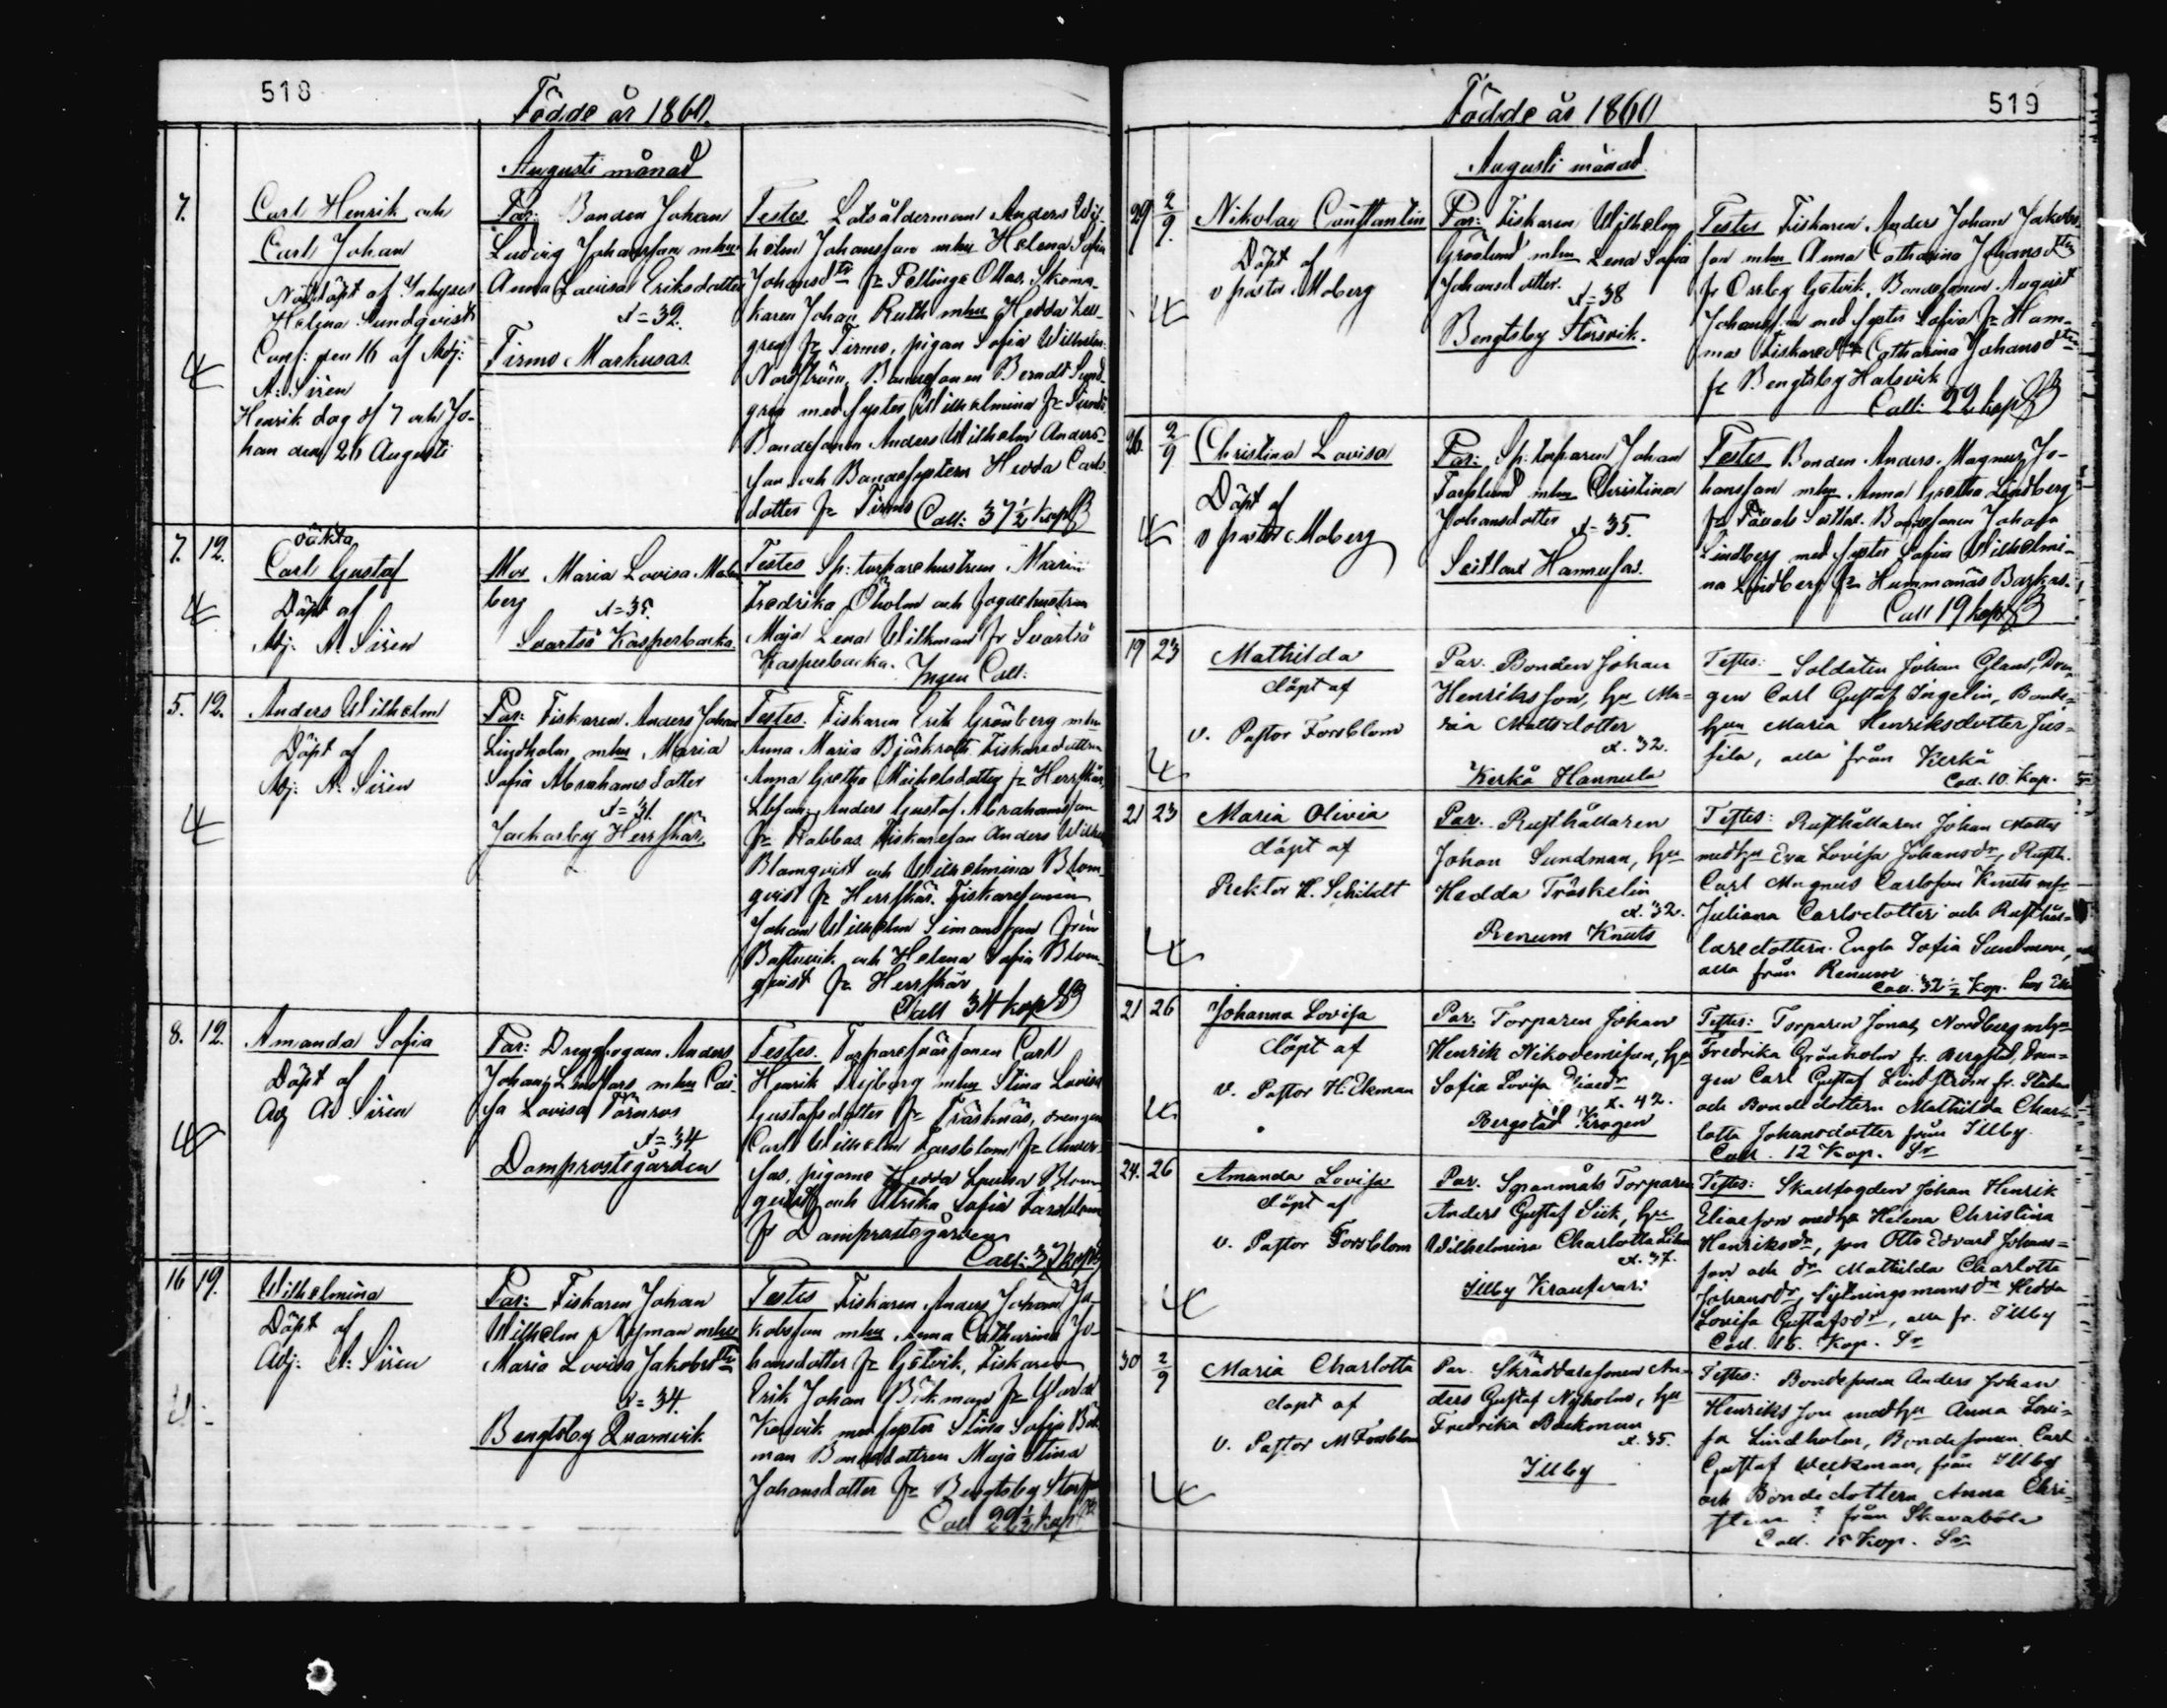 518
Födde år 1860.
Augusti månad
7.
Carl Henrik och
Carl Johan
Nöddöpt af
Helena Sundqvist
Conf: den 16 af Adj:
A: Sirén
Henrik dog d 7 och Jo-
han den 26 Augusti
Far: Bonden Johan
Ludvig Johansson mhu
Anna Lovisa Eriksdotter
d=32.
Tirmo Markusas.
Testes Lotsåldermann Anders Wil-
helm Johansson mhu Helena Sofia
Johansdtr fr Pellinge Ollas. Skoma-
karen Johan Ruth mhu Hedda
gren fr Tirmo, pigan Sofia Wilhelm:
Nordström, Bondesonen Berndt Sund-
gren med syster Wilhelmina fr
Bondesonen Anders Wilhelm Anders-
son och Bondesystern Hedda Carls-
dotter fr Tirmo Coll: 37½ kop
7. 12.
oäkta
Carl Gustaf
Döpt af
Adj: A: Sirén
Mor Maria Lovisa Malm
berg
d=35.
Svartsö Kasperbacka.
Testes Sp: torparehustrun Maria
Fredrika Öholm och fogdehustrun
Maja Lena Wilkman fr Svartsö
Kasperbacka. Ingen Coll:
5. 12.
Anders Wilhelm
Döpt af
Adj: A: Sirén
Far: Fiskaren Anders Johan
Lindholm, mhu Maria
Sofia Abrahamsdotter
d=31.
Jackarby Herrskär.
Testes. Fiskaren Erik Grönberg mhu
Anna Maria Björkroth, Fiskaredottren
Anna Gretha Michelsdotter fr Herrskär,
Anders Gustaf Abrahamsson
fr Rabbas. Fiskareson Anders Wilhelm
Blomqvist och Wilhelmina Blom-
qvist fr Herrskär. Fiskaresonen
Johan Wilhelm Simonsson från
Bastuvik och Helena Sofia Blom-
qvist fr Herrskär
Coll 34 kop
8. 12.
Amanda Sofia
Döpt af
Adj A: Sirén
Far: Drengfogden Anders
Johan Lindfors, mhu Cai-
sa Lovisa Törnros
d=34
Domprostgården
Testes. Torparesvärsonen Carl
Henrik mhu Stina Lovisa
Gustafsdotter fr Träsknäs, drengen
Carl Wilhelm Forsblom fr Ander-
sas, pigorne Hedda Lovisa Blom-
qvist och Ulrika Sofia Forsblom
fr Domprostgården
Coll: 37 kop
16 19.
Wilhelmina
Döpt af
Adj: A: Sirén
Far: Fiskaren Johan
Wilhelm Nyman mhu
Maria Lovisa Jakobsdtr
d=34.
Bengtsby Quarnvik
Testes Fiskaren Anders Johan Ja-
kobsson mhu Anna Catharina Jo-
hansdotter fr Getvik, Fiskaren
Erik Johan Bökman fr
med syster Stina Sofia Bök-
man Bondedottren Maja Stina
Johansdotter fr Bengtsby
Coll 22½ kop
519
Födde år 1860
Augusti månad.
29 2/9.
Nikolay Constantin
Döpt af
v pastor Moberg
Far: Fiskaren Wilhelm
Grönlund mhu Lena Sofia
Johansdotter.
d=38
Bengtsby Storsvik.
Testes Fiskaren Anders Johan Jakobs-
son mhu Anna Catharina Johansdtr
fr Orrby Getvik, Bondesonen August
Johansson med syster Sofia fr Ham-
mas Fiskaredtr Catharina Johansdtr
fr Bengtsby Halsvik
Coll: 22 kop
26. 2/9
Christina Lovisa
Döpt af
v pastor Moberg
Far: Sp: torparen Johan
Forslund mhu Christina
Johansdotter d=35.
Seitlax Hannusas.
Testes Bonden Anders Magnus Jo-
hansson mhu Anna Gretha Lindberg
fr Seitlax. Bondesonen Johan
Lindberg med syster Sofia Wilhelmi-
na Lindberg fr Hummanäs Barkas.
Coll 19 kop
19 23
Mathilda
döpt af
v. Pastor Forsblom
Par. Bonden Johan
Henriksson, hu Ma-
ria Mattsdotter
d. 32.
Kerkå Hannula
Testes: Soldaten Johan Glans, Dren-
gen Carl Gustaf Ingelin, Bonde-
hu Maria Henriksdotter Jus-
sila, alla från Kerkå
Coll. 10. Kop.
21 23
Maria Olivia
döpt af
Rektor H. Schildt
Par. Rusthållaren
Johan Sundman, hu
Hedda Träskelin
d. 32.
Renum Knuts
Testes: Rusthållaren Johan Mattas
medhu Eva Lovisa Johansdr, Rusth.
Carl Magnus Carlsson Knuts mhu
Juliana Carlsdotter och Rusthål-
laredottern Engla Sofia Sundman,
alla från Renum
Coll. 32½ Kop.
21 26
Johanna Lovisa
döpt af
v. Pastor H. Ekman
Par: Torparen Johan
Henrik Nikodemisson, hu
Sofia Lovisa Eliaedr
d. 42.
Bergstad Krogen
Testes: Torparen Jonas Nordberg mhu
Fredrika Grönholm fr. Bergstad, Dren-
gen Carl Gustaf Lindström fr.
och Bondedottern Mathilda Char-
lotta Johansdotter från Illby.
Coll. 12 Kop. Sr
24. 26
Amanda Lovisa
döpt af
v. Pastor Forsblom
Par. Spanmåls Torparen
Anders Gustaf Siik, hu
Wilhelmina Charlotta
d. 37.
Illby Kraufvar
Testes: Skallfogden Johan Henrik
Eliaeson medhu Helena Christina
Henriksdr, son Otto Edvard Johans-
son och dr Mathilda Charlotta
Johansdr, Sytningsmansdr Hedda
Lovisa Gustafsdr, alla fr. Illby
Coll. 16. Kop. Sr
30 2/9
Maria Charlotta
döpt af
v. Pastor M Forsblom
Par. Skräddaresonen An-
ders Gustaf Nyholm, hu
Fredrika Backman
d. 35.
Illby
Testes: Bondesonen Anders Johan
Henriksson medhu Anna Lovi-
sa Lindholm, Bondesonen Carl
Gustaf Weckman, från Illby
och Bondedottern Anna Chri-
stina ? från Skavaböle
Coll. 15 Kop. Sr